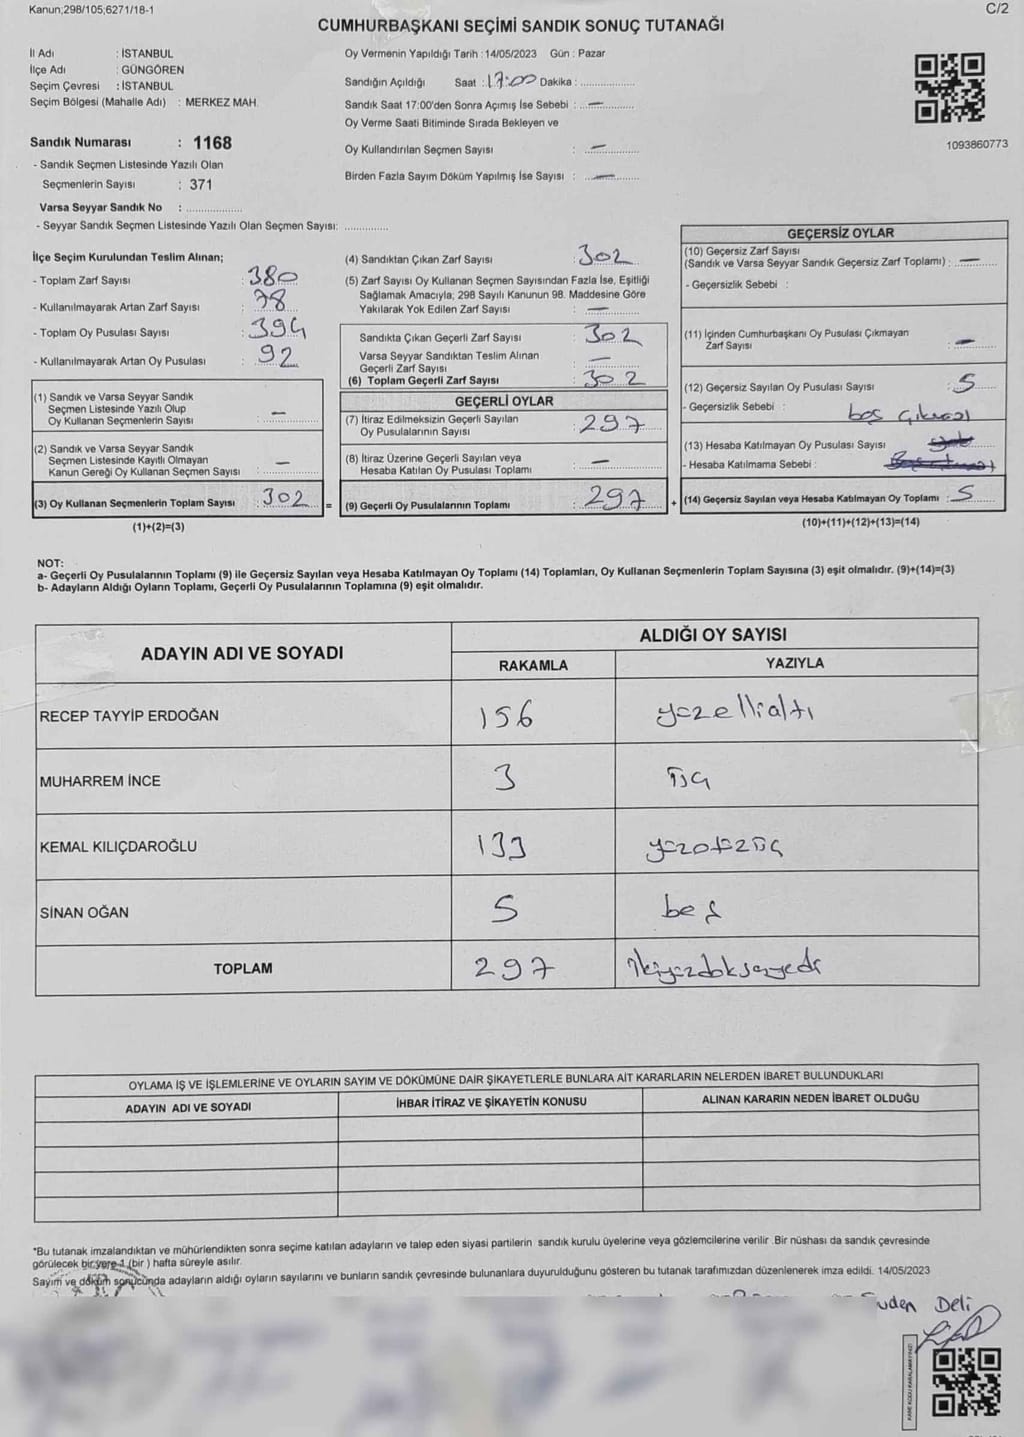 Kanun;298/105;6271/18-1
C/2
CUMHURBAŞKANI SEÇİMİ SANDIK SONUÇ TUTANAĞI
İl Adı : İSTANBUL
İlçe Adı : GÜNGÖREN
Seçim Çevresi : İSTANBUL
Seçim Bölgesi (Mahalle Adı) : MERKEZ MAH.
Oy Vermenin Yapıldığı Tarih : 14/05/2023 Gün : Pazar
Sandığın Açıldığı Saat : 17:00 Dakika : ..................
Sandık Saat 17:00'den Sonra Açımış İse Sebebi : —
Oy Verme Saati Bitiminde Sırada Bekleyen ve
Oy Kullandırılan Seçmen Sayısı : —
Birden Fazla Sayım Döküm Yapılmış İse Sayısı : —
1093860773
Sandık Numarası : 1168
- Sandık Seçmen Listesinde Yazılı Olan
Seçmenlerin Sayısı : 371
Varsa Seyyar Sandık No : ..................
- Seyyar Sandık Seçmen Listesinde Yazılı Olan Seçmen Sayısı: ..............
İlçe Seçim Kurulundan Teslim Alınan;
- Toplam Zarf Sayısı : 380
- Kullanılmayarak Artan Zarf Sayısı : 78
- Toplam Oy Pusulası Sayısı : 394
- Kullanılmayarak Artan Oy Pusulası : 92
(1) Sandık ve Varsa Seyyar Sandık
Seçmen Listesinde Yazılı Olup
Oy Kullanan Seçmenlerin Sayısı : —
(2) Sandık ve Varsa Seyyar Sandık
Seçmen Listesinde Kayıtlı Olmayan
Kanun Gereği Oy Kullanan Seçmen Sayısı : —
(3) Oy Kullanan Seçmenlerin Toplam Sayısı : 302 =
(1)+(2)=(3)
(4) Sandıktan Çıkan Zarf Sayısı : 302
(5) Zarf Sayısı Oy Kullanan Seçmen Sayısından Fazla İse, Eşitliği
Sağlamak Amacıyla; 298 Sayılı Kanunun 98. Maddesine Göre
Yakılarak Yok Edilen Zarf Sayısı : —
Sandıkta Çıkan Geçerli Zarf Sayısı : 302
Varsa Seyyar Sandıktan Teslim Alınan
Geçerli Zarf Sayısı : —
(6) Toplam Geçerli Zarf Sayısı : 302
GEÇERLİ OYLAR
(7) İtiraz Edilmeksizin Geçerli Sayılan
Oy Pusulalarının Sayısı : 297
(8) İtiraz Üzerine Geçerli Sayılan veya
Hesaba Katılan Oy Pusulası Toplamı : —
(9) Geçerli Oy Pusulalarının Toplamı : 297 +
GEÇERSİZ OYLAR
(10) Geçersiz Zarf Sayısı
(Sandık ve Varsa Seyyar Sandık Geçersiz Zarf Toplamı) : —
- Geçersizlik Sebebi :
(11) İçinden Cumhurbaşkanı Oy Pusulası Çıkmayan
Zarf Sayısı : —
(12) Geçersiz Sayılan Oy Pusulası Sayısı : 5
- Geçersizlik Sebebi : boş çıkması
(13) Hesaba Katılmayan Oy Pusulası Sayısı
- Hesaba Katılmama Sebebi :
(14) Geçersiz Sayılan veya Hesaba Katılmayan Oy Toplamı : 5
(10)+(11)+(12)+(13)=(14)
NOT:
a- Geçerli Oy Pusulalarının Toplamı (9) ile Geçersiz Sayılan veya Hesaba Katılmayan Oy Toplamı (14) Toplamları, Oy Kullanan Seçmenlerin Toplam Sayısına (3) eşit olmalıdır. (9)+(14)=(3)
b- Adayların Aldığı Oyların Toplamı, Geçerli Oy Pusulalarının Toplamına (9) eşit olmalıdır.
ADAYIN ADI VE SOYADI
ALDIĞI OY SAYISI
RAKAMLA YAZIYLA
RECEP TAYYİP ERDOĞAN 156 yüzellialtı
MUHARREM İNCE 3 üç
KEMAL KILIÇDAROĞLU 133 yüzotuzüç
SİNAN OĞAN 5 beş
TOPLAM 297 ikiyüzdoksanyedi
OYLAMA İŞ VE İŞLEMLERİNE VE OYLARIN SAYIM VE DÖKÜMÜNE DAİR ŞİKAYETLERLE BUNLARA AİT KARARLARIN NELERDEN İBARET BULUNDUKLARI
ADAYIN ADI VE SOYADI İHBAR İTİRAZ VE ŞİKAYETİN KONUSU ALINAN KARARIN NEDEN İBARET OLDUĞU
*Bu tutanak imzalandıktan ve mühürlendikten sonra seçime katılan adayların ve talep eden siyasi partilerin sandık kurulu üyelerine veya gözlemcilerine verilir .Bir nüshası da sandık çevresinde
görülecek bir yere 1 (bir ) hafta süreyle asılır.
Sayım ve döküm sonucunda adayların aldığı oyların sayılarını ve bunların sandık çevresinde bulunanlara duyurulduğunu gösteren bu tutanak tarafımızdan düzenlenerek imza edildi. 14/05/2023
Deli
KARE KODU KARALAMAYINIZ!